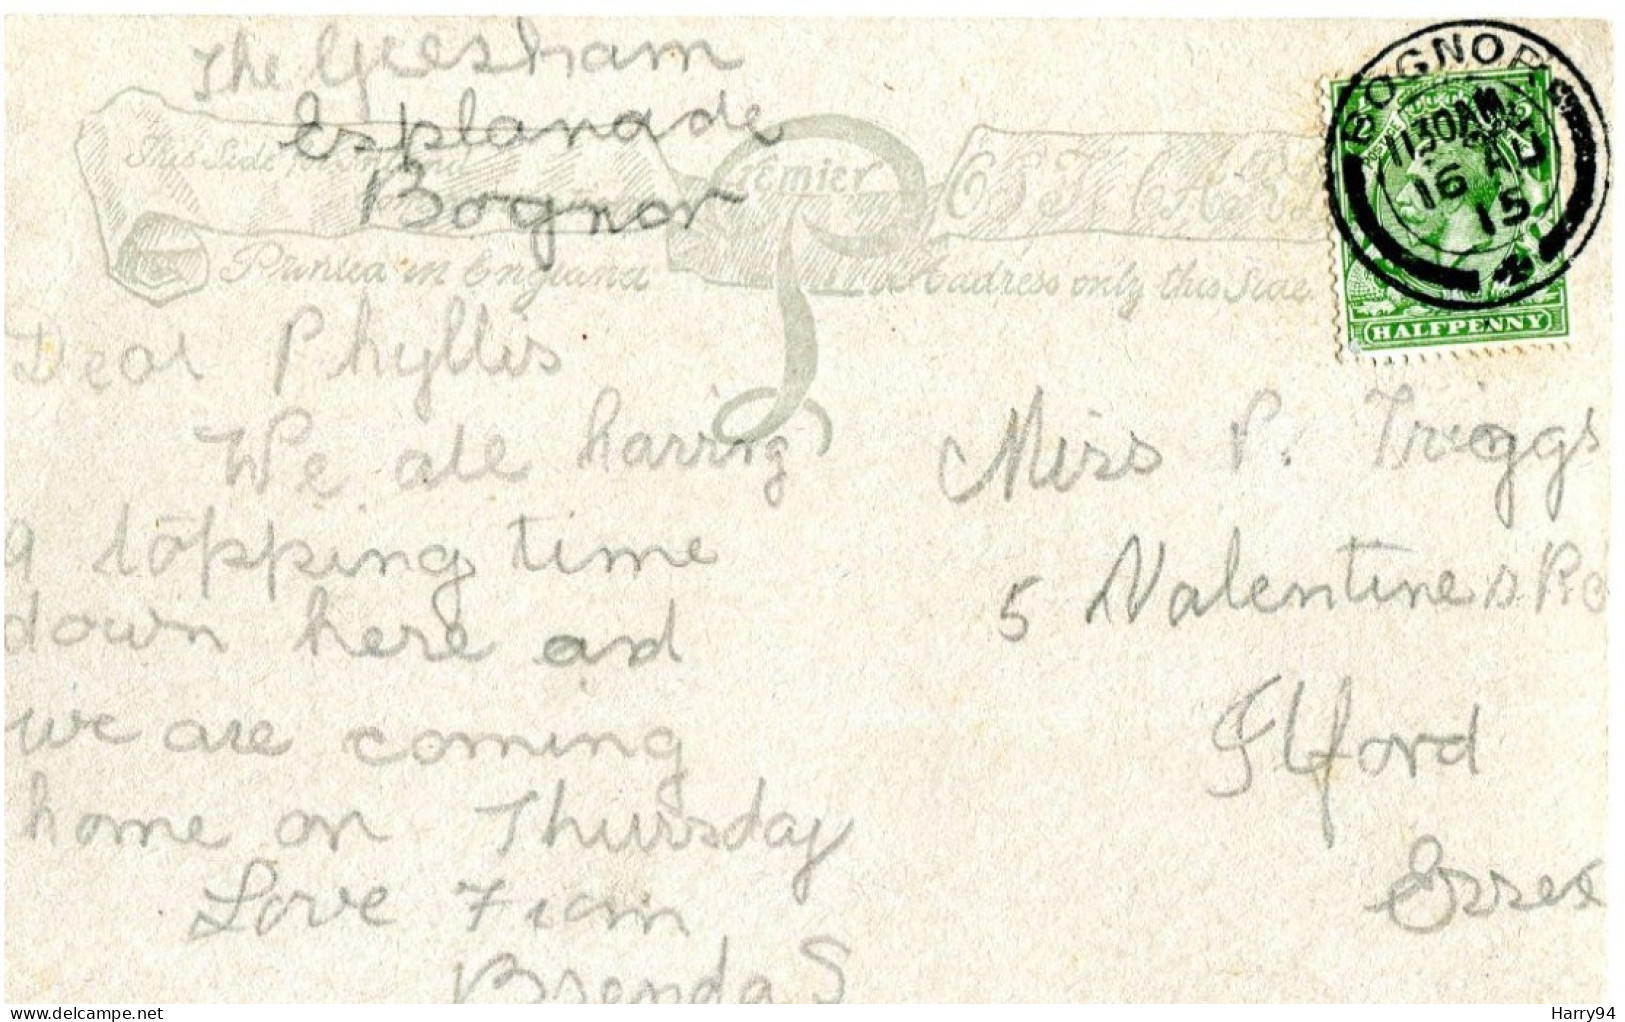 The Gresham
Esplanade
Bognor
This Side for
Premier
POST CAR
Printed in England
Address only this Side
BOGNOR
1130AM
16 AU
15
HALFPENNY
Dear Phyllis
We are having
a topping time
down here and
we are coming
home on Thursday
Love from
Brenda S
Miss P. Triggs
5 Valentines Rd
Ilford
Essex
www.delcampe.net
Harry94